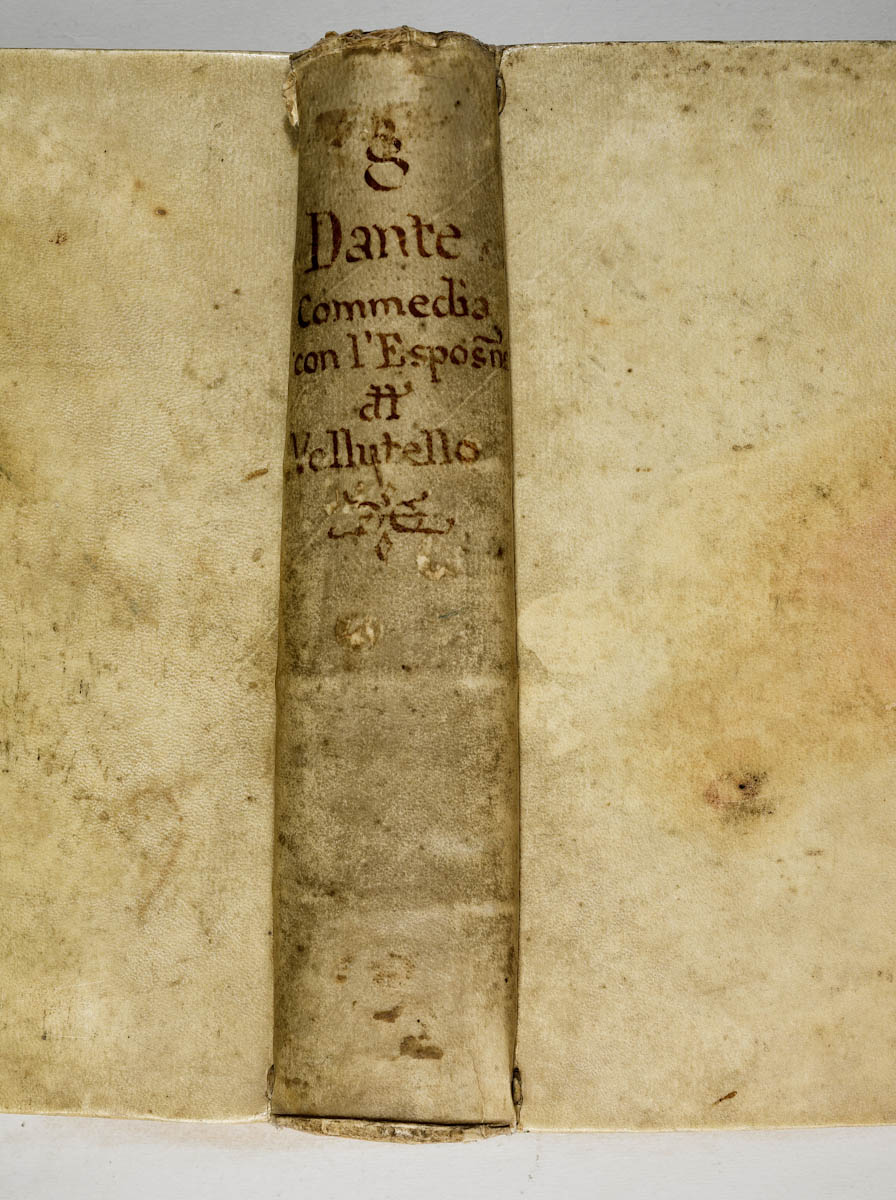 8
Dante
Commedia
con l'Espos̃ne
di
Vellutello